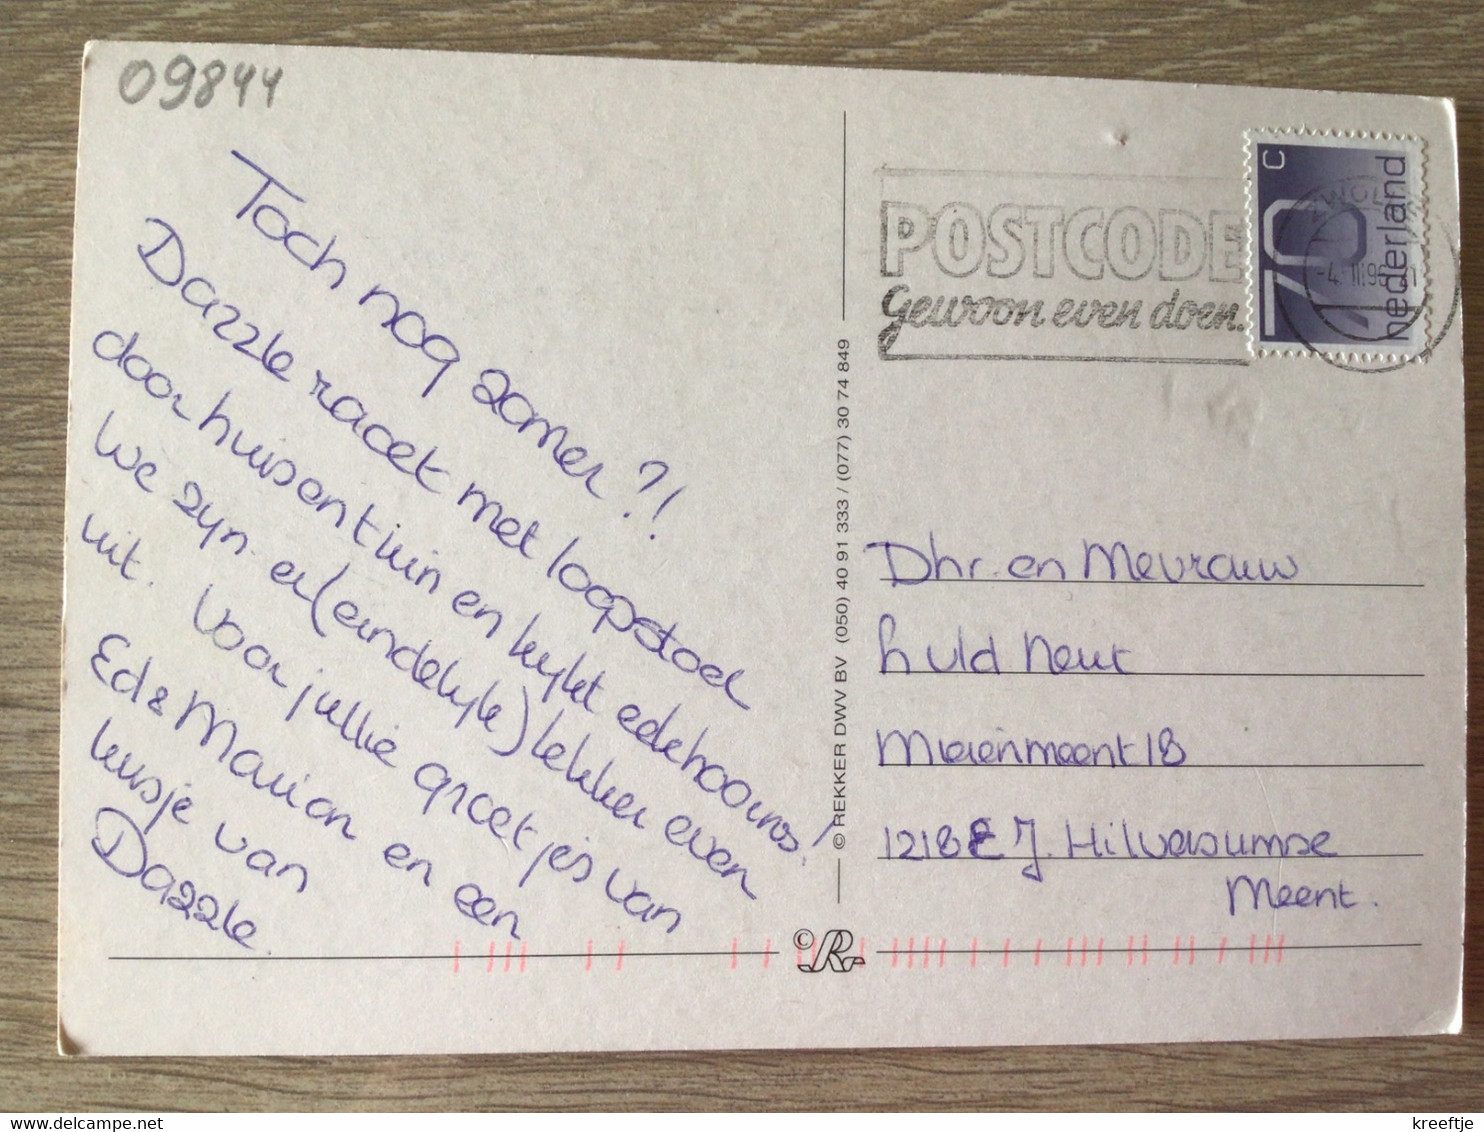 09844
Toch nog zomer?!
Dazzle racet met loopstoel
door huis en tuin en kijkt
We zijn er (eindelijk) lekker even
uit. Voor jullie groetjes van
Ed & Marion en een
kusje van
Dazzle.
© REKKER DWV BV (050) 40 91 333 / (077) 30 74 849
© R
POSTCODE
Gewoon even doen.
70 C
nederland
Dhr. en Mevrouw
Meienmeent 18
1218 EJ. Hilversumse
Meent.
kreeftje